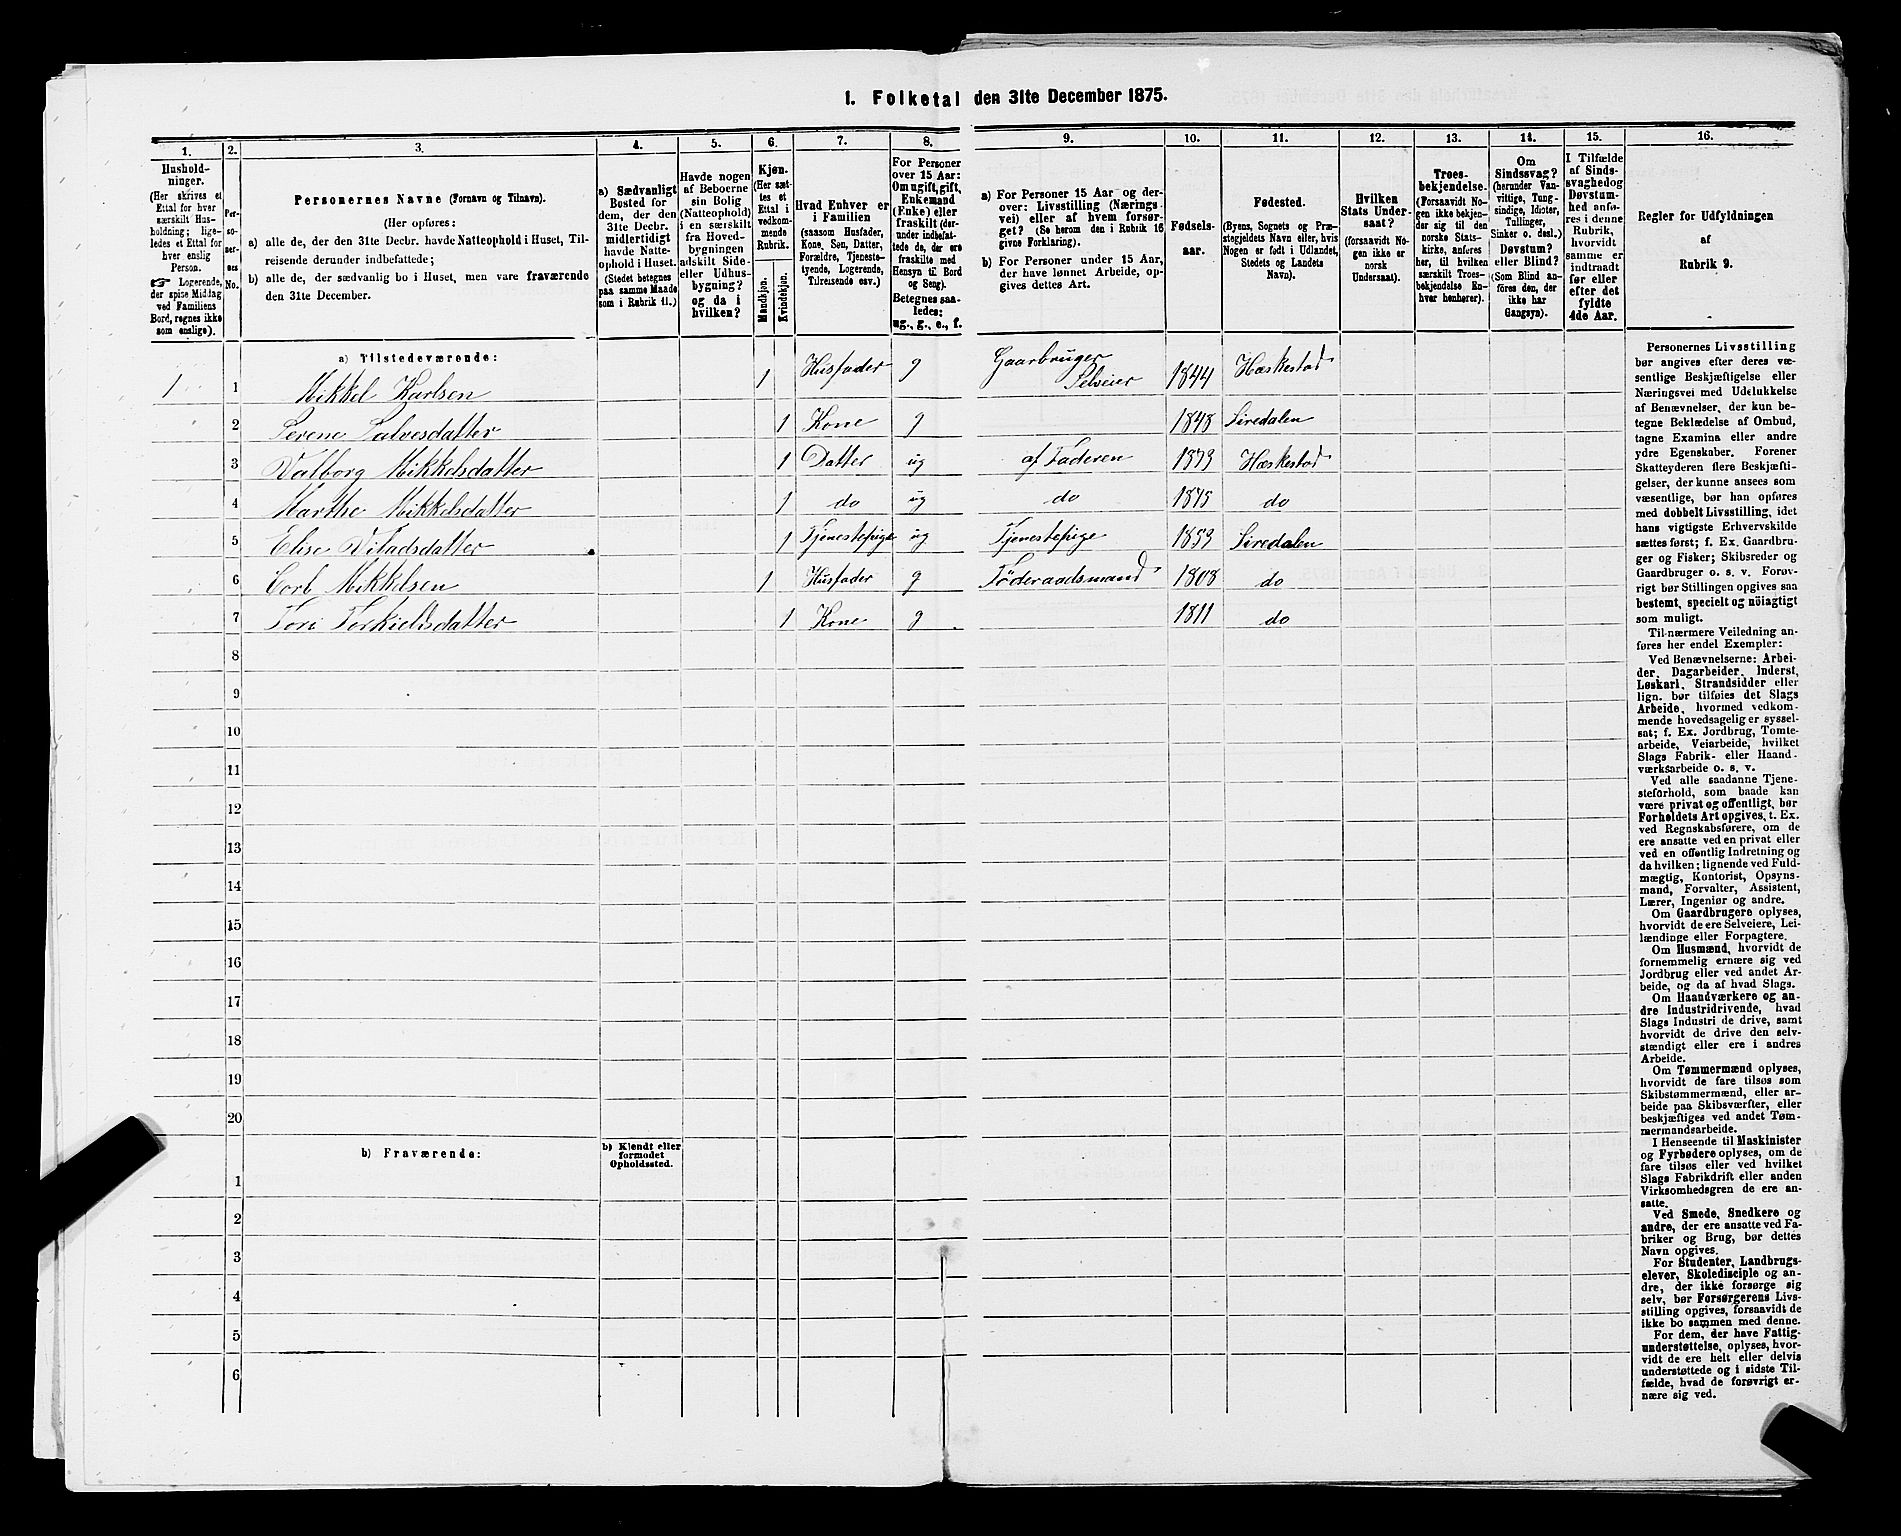 1. Folketal den 31te December 1875.
1.
Hushold-
ninger.
(Her skrives et
Ettal for hver
særskilt Hus-
holdning; lige-
ledes et Ettal for
hver enslig
Person.
☞ Logerende,
der spise Middag
ved Familiens
Bord, regnes ikke
som enslige).
2.
Per-
so-
ner-
nes
No.
3.
Personernes Navne (Fornavn og Tilnavn).
(Her opføres:
a) alle de, der den 31te Decbr. havde Natteophold i Huset, Til-
reisende derunder indbefattede;
b) alle de, der sædvanlig bo i Huset, men vare fraværende
den 31te December.
4.
a) Sædvanligt
Bosted for
dem, der den
31te Decbr.
midlertidigt
havde Natte-
ophold i Huset.
(Stedet betegnes
paa samme Maade
som i Rubrik 11.)
5.
Havde nogen
af Beboerne
sin Bolig
(Natteophold)
i en særskilt
fra Hoved-
bygningen
adskilt Side-
eller Udhus-
bygning?
og da i
hvilken?
6.
Kjøn.
(Her sæt-
tes et
Ettal i
vedkom-
mende
Rubrik.
Mandkjøn.
Kvindekjøn.
7.
Hvad Enhver er
i Familien
(saasom Husfader,
Kone, Søn, Datter,
Forældre, Tjeneste-
tyende, Logerende,
Tilreisende osv.)
8.
For Personer
over 15 Aar:
Om ugift, gift,
Enkemand
(Enke) eller
fraskilt (der-
under indbefat-
tede de, der ere
fraskilte med
Hensyn til Bord
og Seng).
Betegnes saa-
ledes:
ug., g., e., f.
9.
a) For Personer 15 Aar og der-
over: Livsstilling (Nærings-
vei) eller af hvem forsør-
get? (Se herom den i Rubrik 16
givne Forklaring).
b) For Personer under 15 Aar,
der have lønnet Arbeide, op-
gives dettes Art.
10.
Fødsels-
aar.
11.
Fødested.
(Byens, Sognets og Præ-
stegjeldets Navn eller, hvis
Nogen er født i Udlandet,
Stedets og Landets
Navn).
12.
Hvilken
Stats Under-
saat?
(forsaavidt No-
gen ikke er
norsk
Undersaat).
13.
Troes-
bekjendelse.
(Forsaavidt No-
gen ikke bekjen-
der sig til den
norske Stats-
kirke, anføres
her, til hvilken
særskilt Troes-
bekjendelse En-
hver henhører).
14.
Om
Sindssvag?
(herunder Van-
vittige, Tung-
sindige, Idioter,
Tullinger,
Sinker o. desl.)
Døvstum?
eller Blind?
(Som Blind an-
føres den, der
ikke har
Gangsyn).
15.
I Tilfælde
af Sinds-
svaghed og
Døvstum-
hed anfø-
res i denne
Rubrik,
hvorvidt
samme er
indtraadt
før eller
efter det
fyldte
4de Aar.
16.
Regler for Udfyldningen
af
Rubrik 9.
a) Tilstedeværende:
1 1 Mikkel Karlsen 1 Husfader g Gaarbruger Selveier 1844 Hæskestad
2 Serene Salvesdatter 1 Kone g 1848 Siredalen
3 Valborg Mikkelsdatter 1 Datter ug af Faderen 1873 Hæskestad
4 Marthe Mikkelsdatter 1 do ug do 1875 do
5 Elise Viladsdatter 1 Tjenestepige ug Tjenestepige 1853 Siredalen
6 Corl Mikkelsen 1 Husfader g Föderaadsmand 1808 do
7 Tori Torkielsdatter 1 Kone g 1811 do
8
9
10
11
12
13
14
15
16
17
18
19
20
b) Fraværende:
b) Kjendt eller
formodet
Opholdssted.
1
2
3
4
5
6
Personernes Livsstilling
bør angives efter deres væ-
sentlige Beskjæftigelse eller
Næringsvei med Udelukkelse
af Benævnelser, der kun be-
tegne Beklædelse af Ombud,
tagne Examina eller andre
ydre Egenskaber. Forener
Skatteyderen flere Beskjæfti-
gelser, der kunne ansees som
væsentlige, bør han opføres
med dobbelt Livsstilling, idet
hans vigtigste Erhvervskilde
sættes først; f. Ex. Gaardbru-
ger og Fisker; Skibsreder og
Gaardbruger o. s. v. Forøv-
rigt bør Stillingen opgives saa
bestemt, specielt og nöiagtigt
som muligt.
Til nærmere Veiledning an-
føres her endel Exempler:
Ved Benævnelserne: Arbei-
der, Dagarbeider, Inderst,
Løskarl, Strandsidder eller
lign. bør tilføies det Slags
Arbeide, hvormed vedkom-
mende hovedsagelig er syssel-
sat; f. Ex. Jordbrug, Tomte-
arbeide, Veiarbeide, hvilket
Slags Fabrik- eller Haand-
værksarbeide o. s. v.
Ved alle saadanne Tjene-
steforhold, som baade kan
være privat og offentligt, bør
Forholdets Art opgives, t. Ex.
ved Regnskabsførere, om de
ere ansatte ved en privat eller
ved en offentlig Indretning og
da hvilken; lignende ved Fuld-
mægtig, Kontorist, Opsyns-
mand, Forvalter, Assistent,
Lærer, Ingeniør og andre.
Om Gaardbrugere oplyses,
hvorvidt de ere Selveiere, Lei-
lændinge eller Forpagtere.
Om Husmænd, hvorvidt de
fornemmelig ernære sig ved
Jordbrug eller ved andet Ar-
beide, og da af hvad Slags.
Om Haandværkere og an-
dre Industridrivende, hvad
Slags Industri de drive, samt
hvorvidt de drive den selv-
stændigt eller ere i andres
Arbeide.
Om Tømmermænd oplyses,
hvorvidt de fare tilsøs som
Skibstømmermænd, eller ar-
beide paa Skibsværfter, eller
beskjæftiges ved andet Tøm-
mermandsarbeide.
I Henseende til Maskinister
og Fyrbødere oplyses, om de
fare tilsøs eller ved hvilket
Slags Fabrikdrift eller anden
Virksomhedsgren de ere an-
satte.
Ved Smede, Snedkere og
andre, der ere ansatte ved Fa-
briker og Brug, bør dettes
Navn opgives.
For Studenter, Landbrugs-
elever, Skoledisciple og an-
dre, der ikke forsørge sig
selv, bør Forsørgerens Livs-
stilling opgives, forsaavidt de
ikke bo sammen med denne.
For dem, der have Fattig-
understøttelse, oplyses, hvor-
vidt de ere helt eller delvis
understøttede og i sidste Til-
fælde, hvad de forøvrigt er-
nære sig ved.